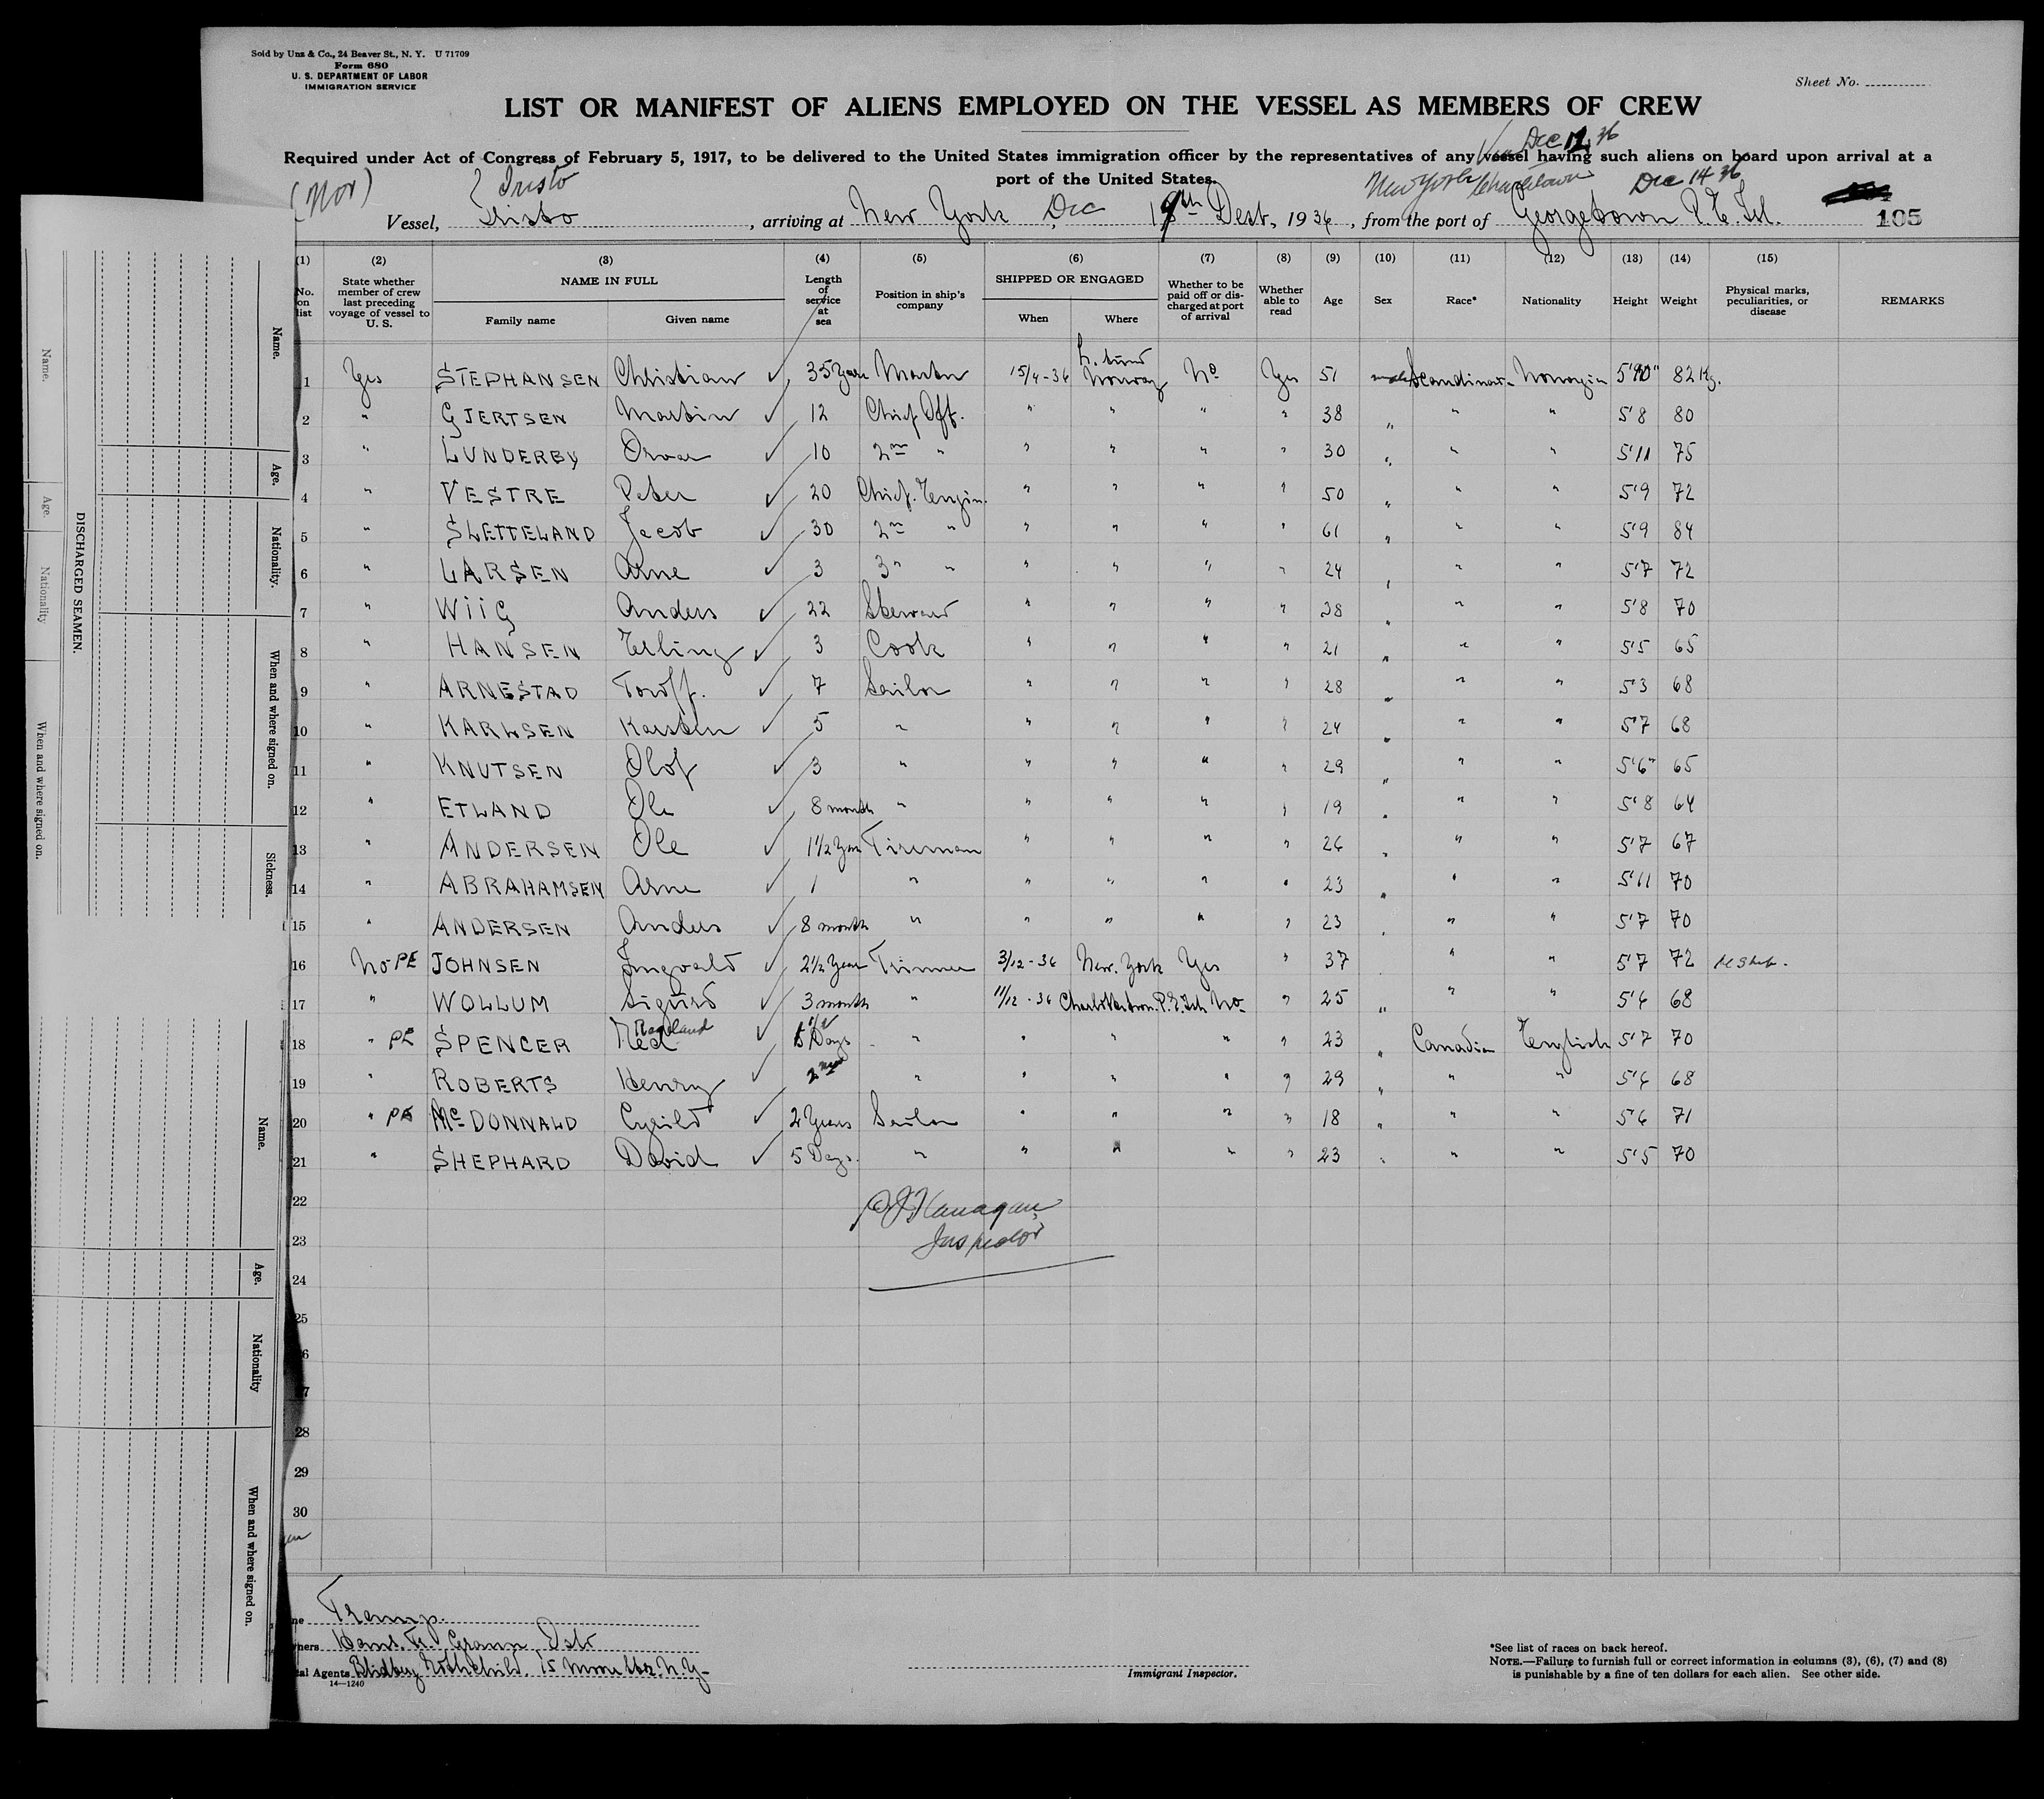 Sold by Unz & Co., 24 Beaver St., N. Y. U 71709
Form 680
U. S. DEPARTMENT OF LABOR
IMMIGRATION SERVICE
Sheet No.
LIST OR MANIFEST OF ALIENS EMPLOYED ON THE VESSEL AS MEMBERS OF CREW
Dec 12, 36
Required under Act of Congress of February 5, 1917, to be delivered to the United States immigration officer by the representatives of any vessel having such aliens on board upon arrival at a
port of the United States.
(Nor) Tristo New York Charlottetown Dec 14 36
Vessel, Tristo, arriving at New York, Dec 19th Desb, 1936, from the port of Georgetown P. E. Isl. 105
(1) (2) (3) (4) (5) (6) (7) (8) (9) (10) (11) (12) (13) (14) (15)
No. on list
State whether member of crew last preceding voyage of vessel to U. S.
NAME IN FULL
Family name Given name
Length of service at sea
Position in ship's company
SHIPPED OR ENGAGED
When Where
Whether to be paid off or discharged at port of arrival
Whether able to read
Age Sex Race* Nationality Height Weight
Physical marks, peculiarities, or disease
REMARKS
1 Yes STEPHANSEN Christian 35 Years Master 15/4-36 Norway No Yes 51 male Scandinav- Norwegin 5'10" 82 Kg.
2 " GJERTSEN Martin 12 Chief Off. " " " " 38 " " " 5'8 80
3 " LUNDERBY 10 2nd " " " " " 30 " " " 5'11 75
4 " VESTRE Peter 20 Chief. Engin. " " " " 50 " " " 5'9 72
5 " SLETTELAND Jacob 30 2nd " " " " " 61 " " " 5'9 84
6 " LARSEN Arne 3 3" " " " " " 24 " " " 5'7 72
7 " WIIG Anders 22 Steward " " " " 38 " " " 5'8 70
8 " HANSEN Erling 3 Cook " " " " 21 " " " 5'5 65
9 " ARNESTAD Toroff. 7 Sailor " " " " 28 " " " 5'3 68
10 " KARLSEN Karsten 5 " " " " " 24 " " " 5'7 68
11 " KNUTSEN Olof 3 " " " " " 29 " " " 5'6" 65
12 " ETLAND Ole 8 month " " " " " 19 " " " 5'8 64
13 " ANDERSEN Ole 1½ Year Fireman " " " " 26 " " " 5'7 67
14 " ABRAHAMSEN Arne 1 " " " " " 23 " " " 5'11 70
15 " ANDERSEN Anders 8 month " " " " " 23 " " " 5'7 70
16 No PE JOHNSEN Ingvald 2½ Year Trimmer 3/12-36 New. York Yes " 37 " " 5'7 72
17 " WOLLUM Sigurd 3 month " 11/12-36 Charlottestown. P. E. Isl. No " 25 " " " 5'6 68
18 " PE SPENCER Ned Days " " " " " 23 " Canadian English 5'7 70
19 " ROBERTS Henry " " " " " 29 " " " 5'6 68
20 " PE McDONNALD Cyrild 2 Years Sailor " " " " 18 " " " 5'6 71
21 " SHEPHARD David 5 Days. " " " " " 23 " " " 5'5 70
22
23
24
25
28
29
30
Flanagan
Inspector
Tramp.
Hans. Fr. Grann Oslo
Agents Rothchild. 15 Moore Str. N. Y-
14—1240
Immigrant Inspector.
*See list of races on back hereof.
NOTE.—Failure to furnish full or correct information in columns (3), (6), (7) and (8)
is punishable by a fine of ten dollars for each alien. See other side.
DISCHARGED SEAMEN.
Name.
Age.
Nationality.
When and where signed on.
Sickness.
Name.
Age.
Nationality
When and where signed on.
Name.
Age.
Nationality
When and where signed on.